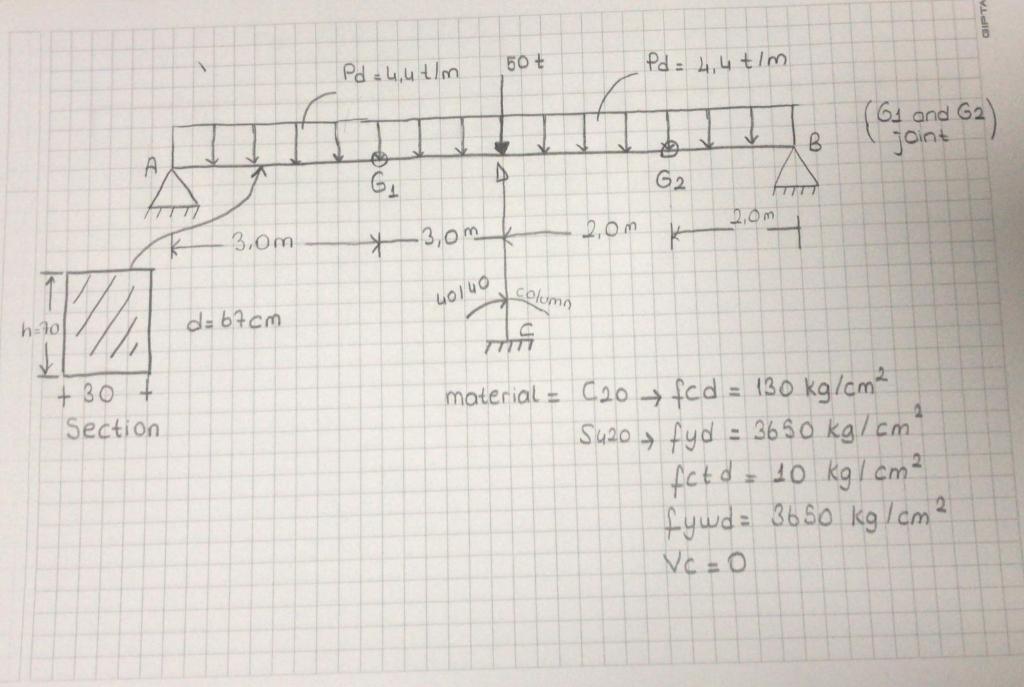 Pd = 4,4 t/m
50 t
Pd = 4,4 t/m
(G1 and G2) joint
A
G1
D
G2
B
3,0m
3,0m
2,0m
2,0m
40/40
column
C
h=70
d=67cm
30
Section
material = C20 → fcd = 130 kg/cm²
S420 → fyd = 3650 kg/cm²
fctd = 10 kg/cm²
fywd = 3650 kg/cm²
Vc = 0